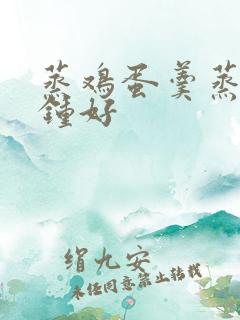 蒸鸡蛋羹蒸
锺好
绢九安
未经同意禁止转载